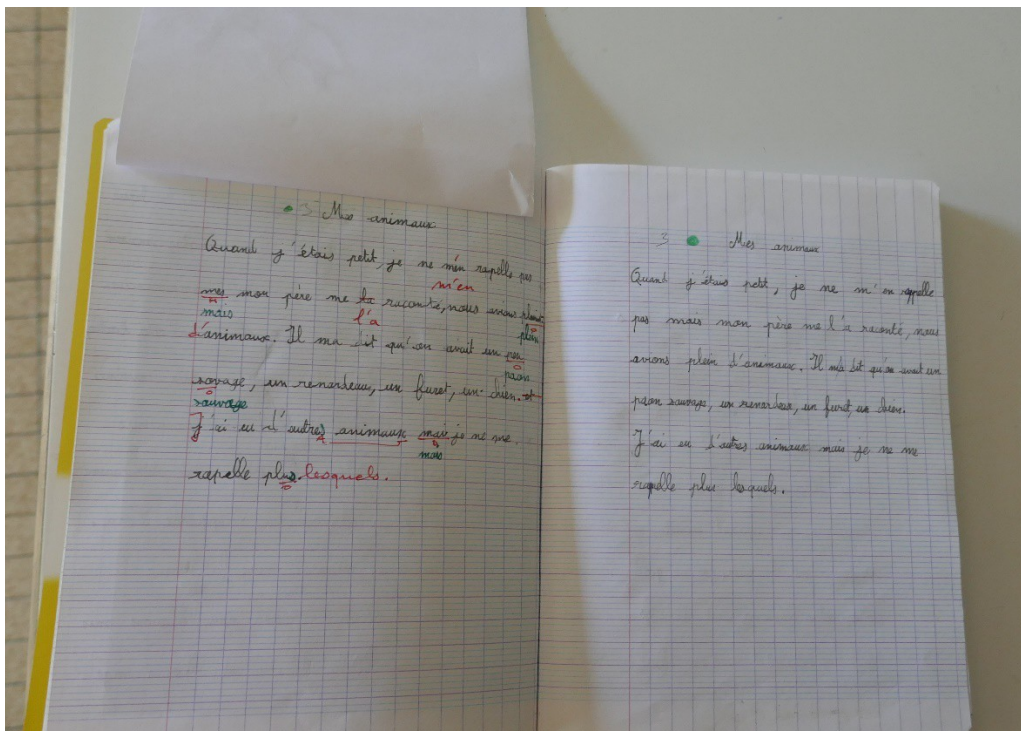 3 Mes animaux
Quand j'étais petit, je ne m'én rapelle pas
m'en
mes mon père me la raconté, nous avions
mais l'a plein
d'animaux. Il ma dit qu'on avait un pan
paon
sovage, un renardeau, un furet, un chien. et
sauvage
J'ai eu d'autres animaux mair je ne me
mais
rapelle plus. lesquels.
3 Mes animaux
Quand j'étais petit, je ne m'en rappelle
pas mais mon père me l'a raconté, nous
avions plein d'animaux. Il m'a dit qu'on avait un
paon sauvage, un renardeau, un furet, un chien.
J'ai eu d'autres animaux mais je ne me
rapelle plus lesquels.